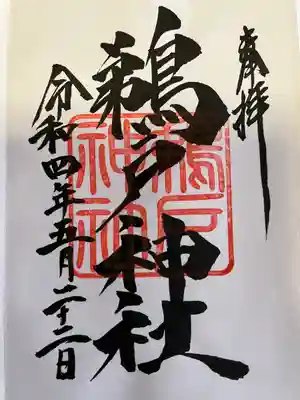 奉拝
鵜戸神社
令和四年五月二十二日
鵜戸
神社